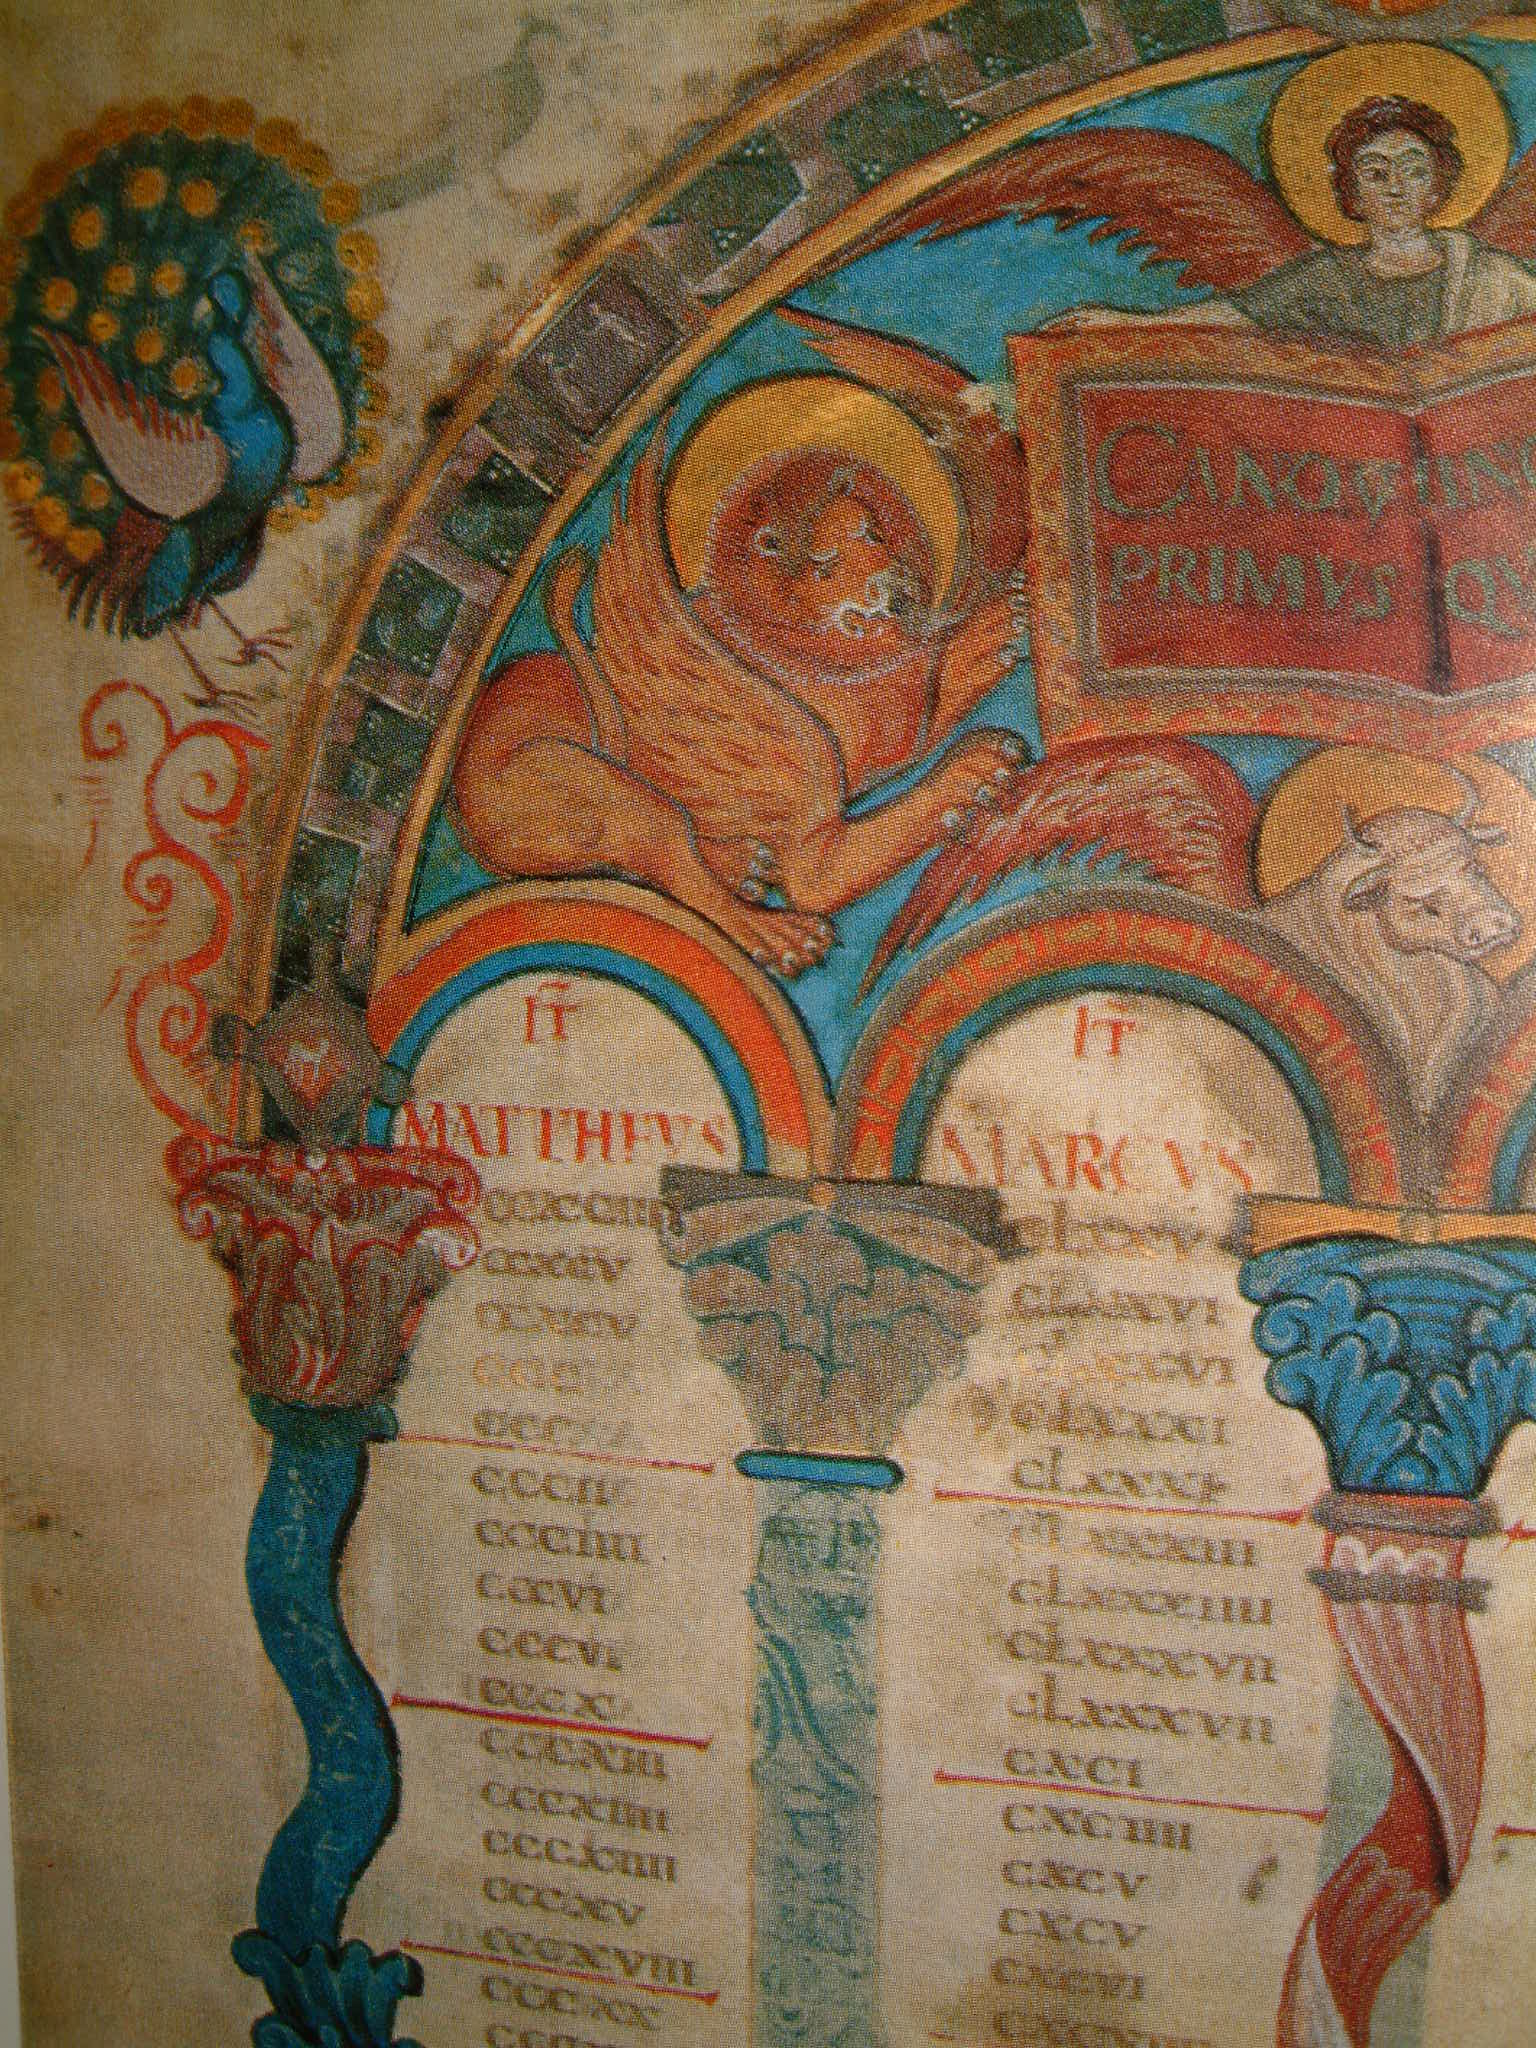 CANON IN
PRIMVS QV
IT
MATTHEVS
CCXCIIII
CCXCV
CCXCV
CCCII
CCCIIII
CCCVI
CCCX
CCCXIII
CCCXIIII
CCCXIIII
CCCXV
CCCXVIII
CCCXX
IT
MARCVS
CLXXV
CLXXVI
CLXXVI
CLXXXI
CLXXXIII
CLXXXIIII
CLXXXVII
CLXXXVII
CXCI
CXCIIII
CXCV
CXCV
CXCVI